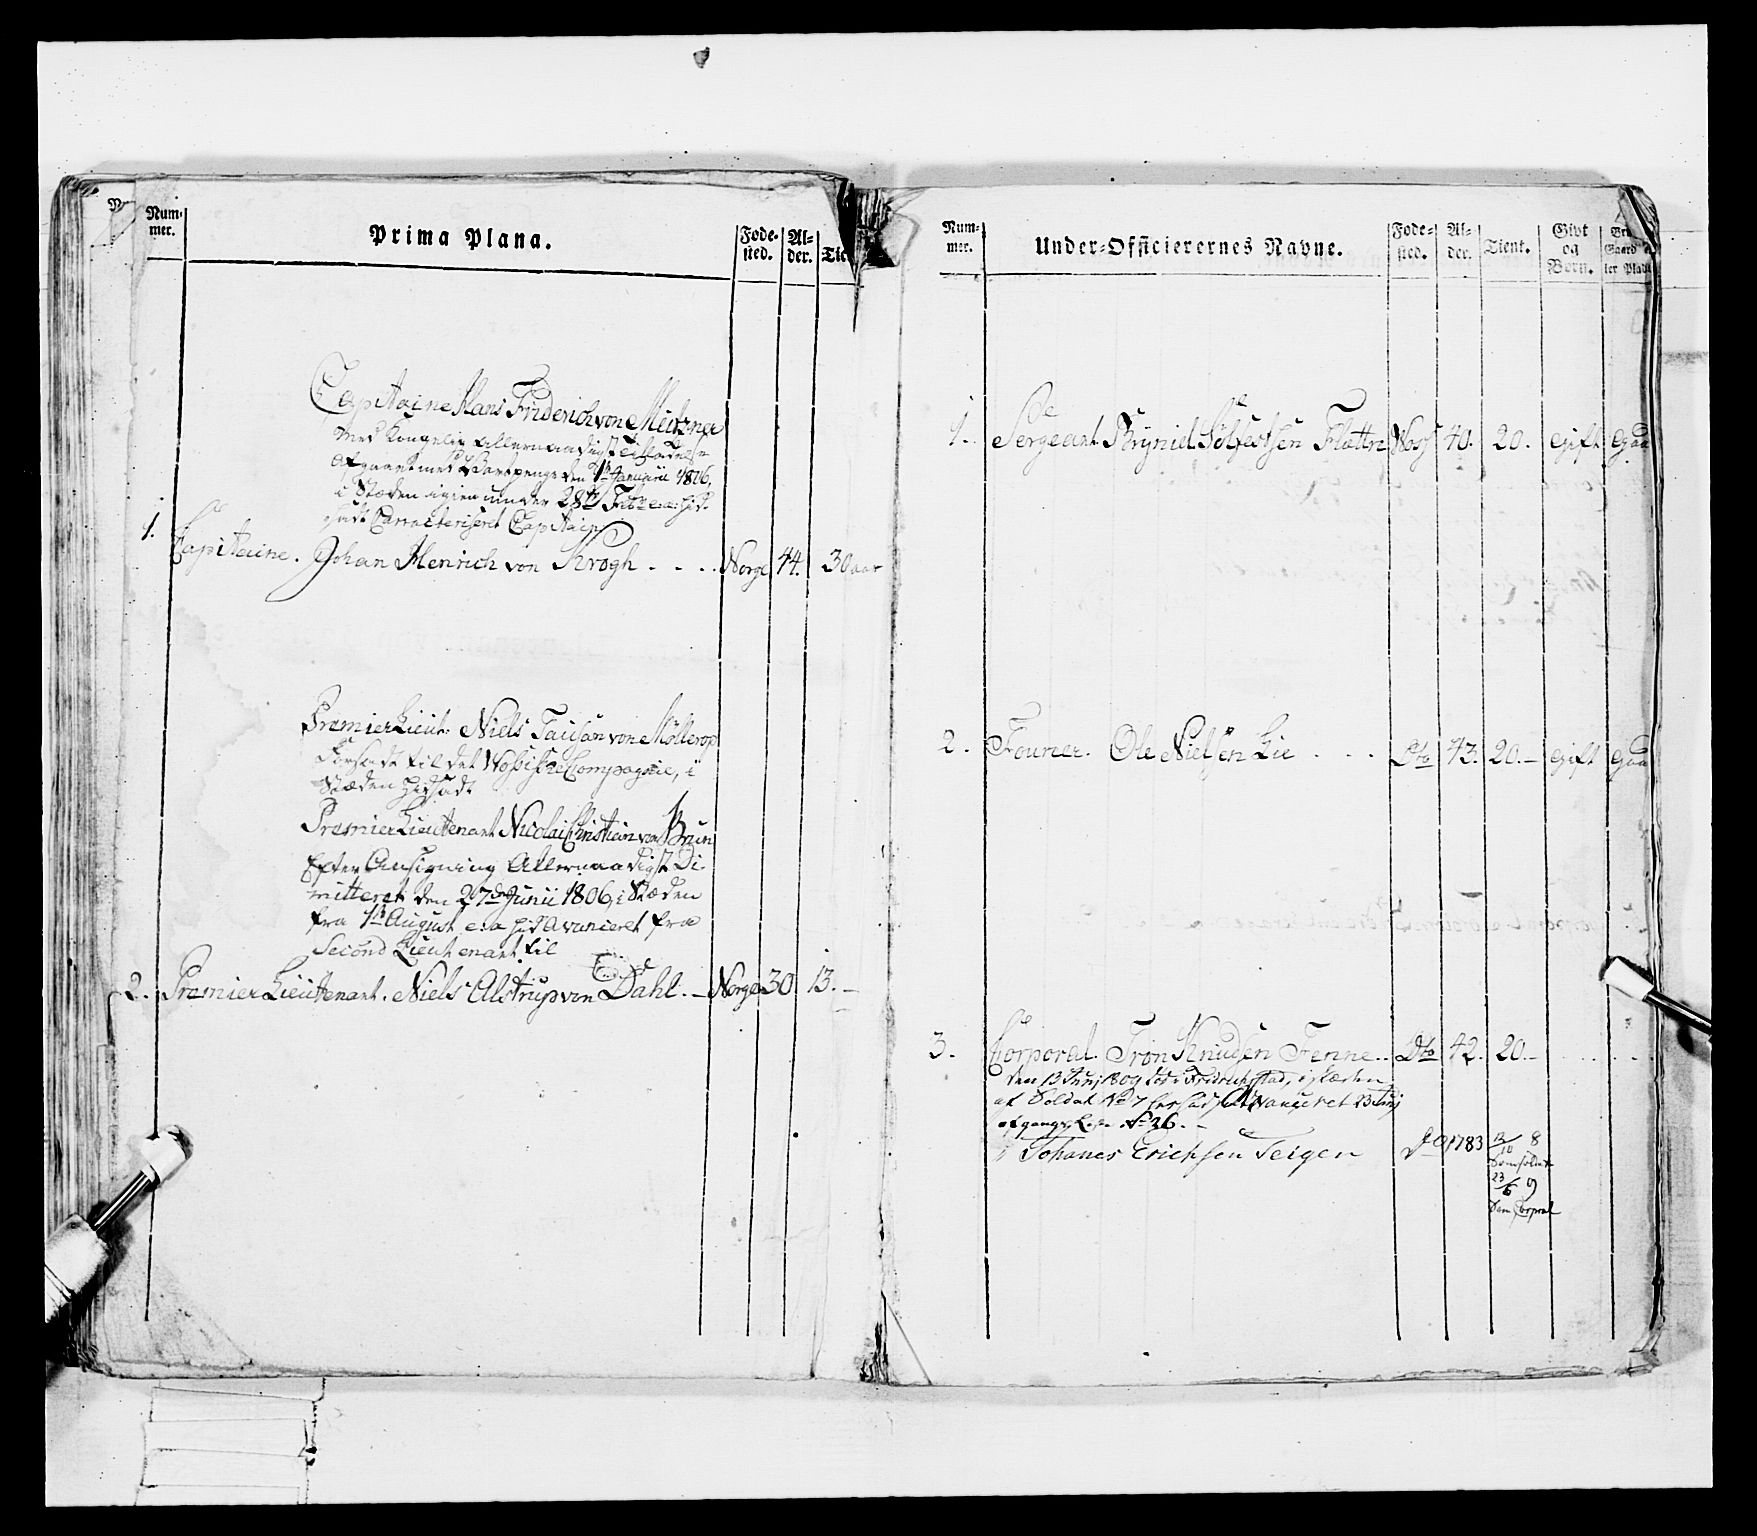 Num-
mer.
Prima Plana.
Føde-
sted.
Al-
der.
Capitaine Hans Friderich von Meitzner
med Kongelig allernaadigst Tiladelse
afgaaet med Vartpenge den 1te Januarii 1806,
i Stæden igien under 28de Febr: e: a: hid-
sadt Carracteriseret Capitain
1. Capitaine. Johan Henrich von Krogh . . . . Norge 44. 30 aar
Premier Lieut: Niels Tausan von Møllerop
Forsadt til det Wossiske Compagnie, i
Stæden hidsadt
Premier Lieutenant Nicolai Christian von Brun
Efter Ansigning Allernaadigst Di-
mitteret den 27de Junii 1806, i Stæden
fra 1te August e: a hid Avanceret fra
Second Lieutenant til
2. Premier Lieutenant. Niels Alstrup von Dahl. – Norge 30 13. –
Num-
mer.
Under-Officierernes Navne.
Føde-
sted.
Al-
der.
Tient.
Givt
og
Børn.
Gaard
ler Plads
1. Sergeant. Bryniel Sølfestsen Flattre Woss 40. 20. Gift Gaa
2. Foureer. Ole Nielsen Lie . . . Dto 43. 20. – Gift Gaa
3. Corporal. Tron Knudsen Fenne . . Dto 42. 20. –
den 13 Junj 1809 død i Fridrichstad, i stæden
af Soldat No 7 Avanceret 23 Junj
No 26. –
Johanes Erichsen Teigen Do 1783 12/10 8
Som soldat
23/6 9
Som Corporal